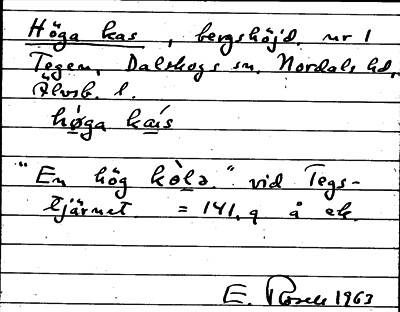 Höga kas, bergshöjd, nr 1
Tegen, Dalskogs sn, Nordals hd,
Älvsb. l.
hö́ga ka̱i̱s
"En hög kòlə." vid Tegs-
tjärnet = 141,9 å ek.
E. Rosell 1963